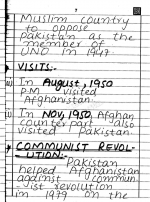 Muslim country
to oppose
Pakistan as the
member of
UNO in 1947.
VISITS:-
i) In August, 1950
P.M visited
Afghanistan.
ii) In Nov, 1950, Afghan
counter part also
visited Pakistan.
COMMUNIST REVOL-
UTION:-
Pakistan
helped Afghanistan
against commun
-ist revolution
in 1979 on the